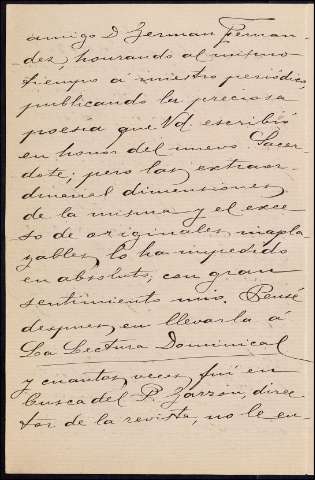 amigo D. German Fernan-
dez, honrando al mismo
tiempo á nuestro periódico,
publicando la preciosa
poesía que Vd escribió
en honor del nuevo Sacer-
dote; pero las extraor-
dinarias dimensiones
de la misma y el exce-
so de originales inapla-
zables, lo ha impedido
en absoluto, con gran
sentimiento mio. Pensé
despues en llevarla á
La Lectura Dominical
y cuantas veces fuí en
busca del P. Garzon, direc-
tor de la revista, no le en-